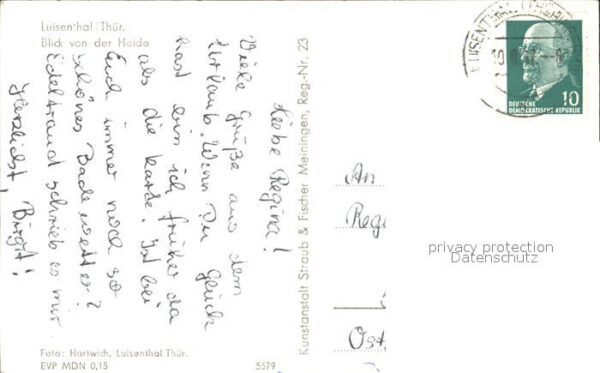 Luisenthal/Thür.
Blick von der Heide
Liebe Regina!
Viele Grüße aus dem
Urlaub. Wenn Du Glück
hast bin ich früher da
als die Karte. Ist bei
Euch immer noch so
schönes Badewetter?
Edeltraud schrieb es mir.
Herzlichst,
Birgit!
Foto: Hartwich, Luisenthal Thür.
EVP MDN 0,15
5579
Kunstanstalt Straub & Fischer Meiningen, Reg.-Nr. 23
LUISENTHAL (THÜR
10
DEUTSCHE
DEMOKRATISCHE REPUBLIK
An
Regi
Ost
privacy protection
Datenschutz